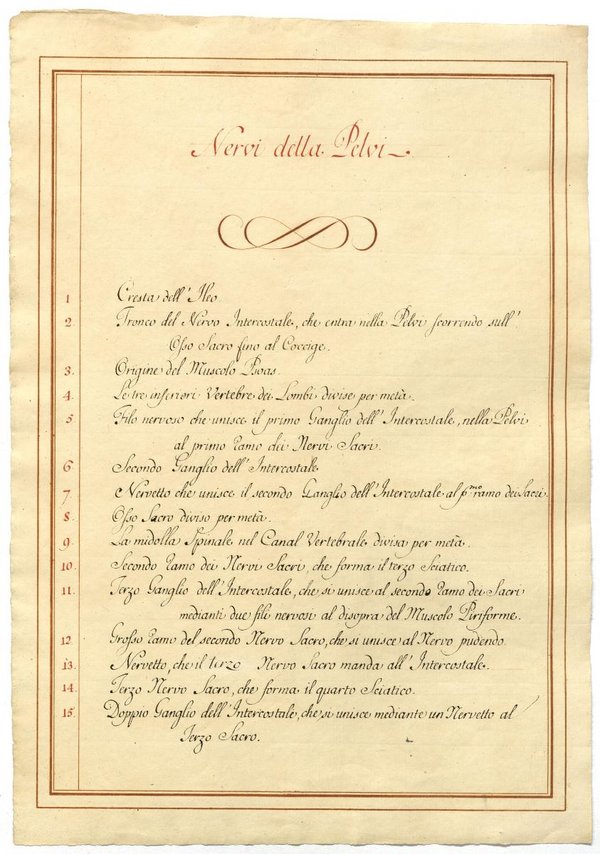 Nervi della Pelvi
1 Cresta dell' Ileo
2. Tronco del Nervo Intercostale, che entra nella Pelvi scorrendo sull'
Osso Sacro fino al Coccige.
3. Origine del Muscolo Psoas.
4. Le tre inferiori Vertebre dei Lombi divise per metà.
5 Filo nervoso che unisce il primo Ganglio dell' Intercostale, nella Pelvi
al primo ramo dei Nervi Sacri.
6. Secondo Ganglio dell' Intercostale
7. Nervetto che unisce il secondo Ganglio dell' Intercostale al p.mo ramo dei Sacri.
8. Osso Sacro diviso per metà.
9. La midolla Spinale nel Canal Vertebrale divisa per metà.
10. Secondo ramo dei Nervi Sacri, che forma il terzo Sciatico.
11. Terzo Ganglio dell' Intercostale, che si unisce al secondo ramo dei Sacri
medianti due fili nervosi al disopra del Muscolo Piriforme.
12. Grosso ramo del secondo Nervo Sacro, che si unisce al Nervo pudendo.
13. Nervetto, che il terzo Nervo Sacro manda all' Intercostale.
14. Terzo Nervo Sacro, che forma il quarto Sciatico.
15. Doppio Ganglio dell' Intercostale, che si unisce mediante un Nervetto al
Terzo Sacro.